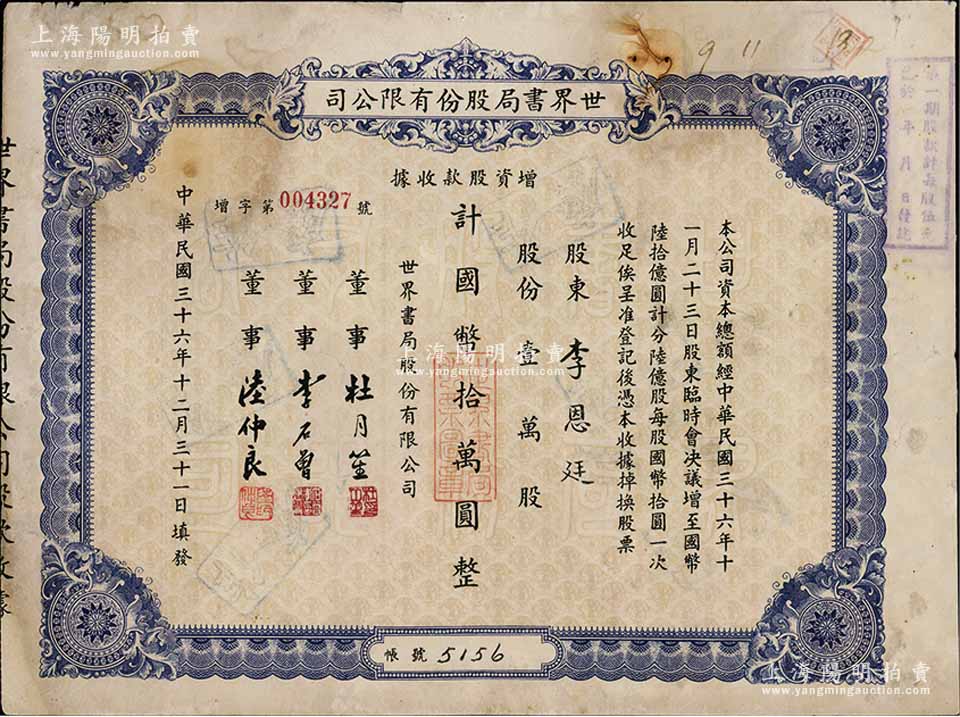 上海陽明拍賣
www.yangmingauction.com
世界書局股份有限公司
增資股款收據
本公司資本總額經中華民國三十六年十
一月二十三日股東臨時會決議增至國幣
陸拾億圓計分陸億股每股國幣拾圓一次
收足俟呈准登記後憑本收據掉換股票
股東 李恩廷
股份 壹萬股
計國幣拾萬圓整
世界書局股份有限公司
董事 杜月笙
董事 李石曾
董事 陸仲良
增字第004327號
中華民國三十六年十二月三十一日填發
帳號 5156
9 11
上海陽明拍賣
www.yangmingauction.com
上海陽明拍賣
www.yangmingauction.com